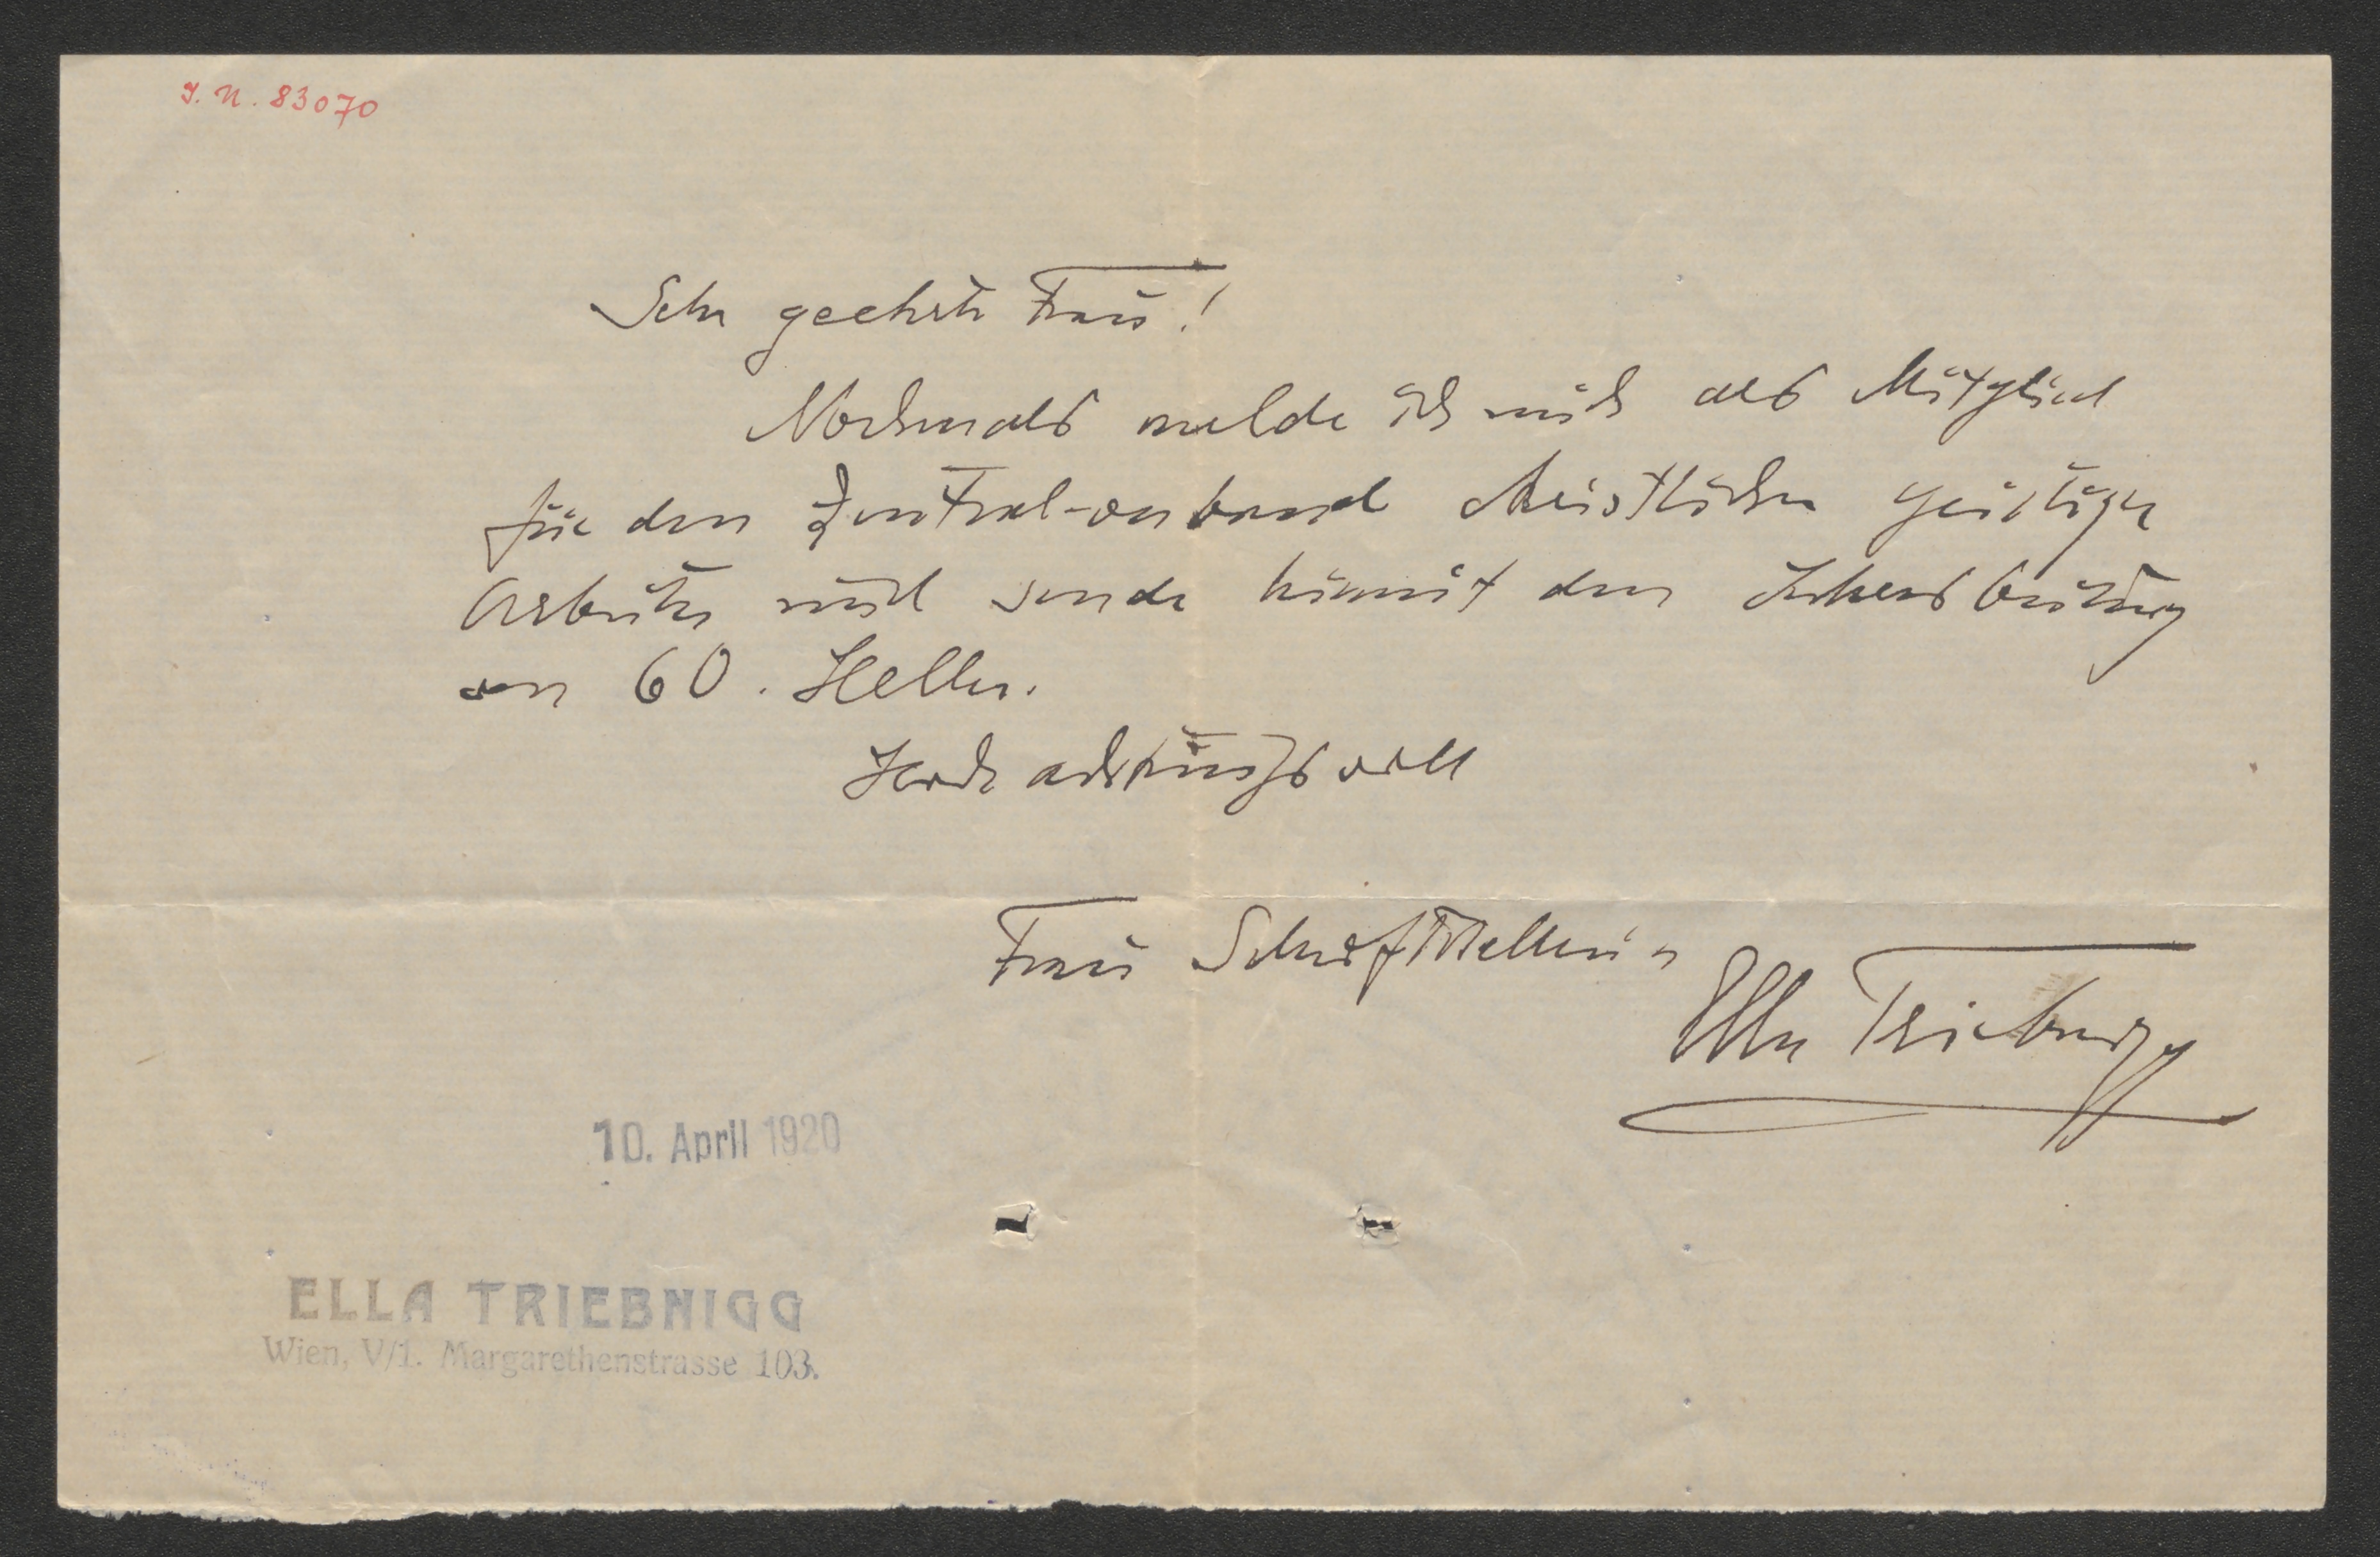 I. N. 83070
Sehr geehrte Frau!
Nochmals melde ich mich als Mitglied
für den Zentral-verband christlicher geistiger
Arbeiter und sende hiemit den Jahresbeitrag
von 60. Heller.
Hochachtungsvoll
Frau Schriftstellerin
Ella Triebnigg
10. April 1920
ELLA TRIEBNIGG
Wien, V/1. Margarethenstrasse 103.